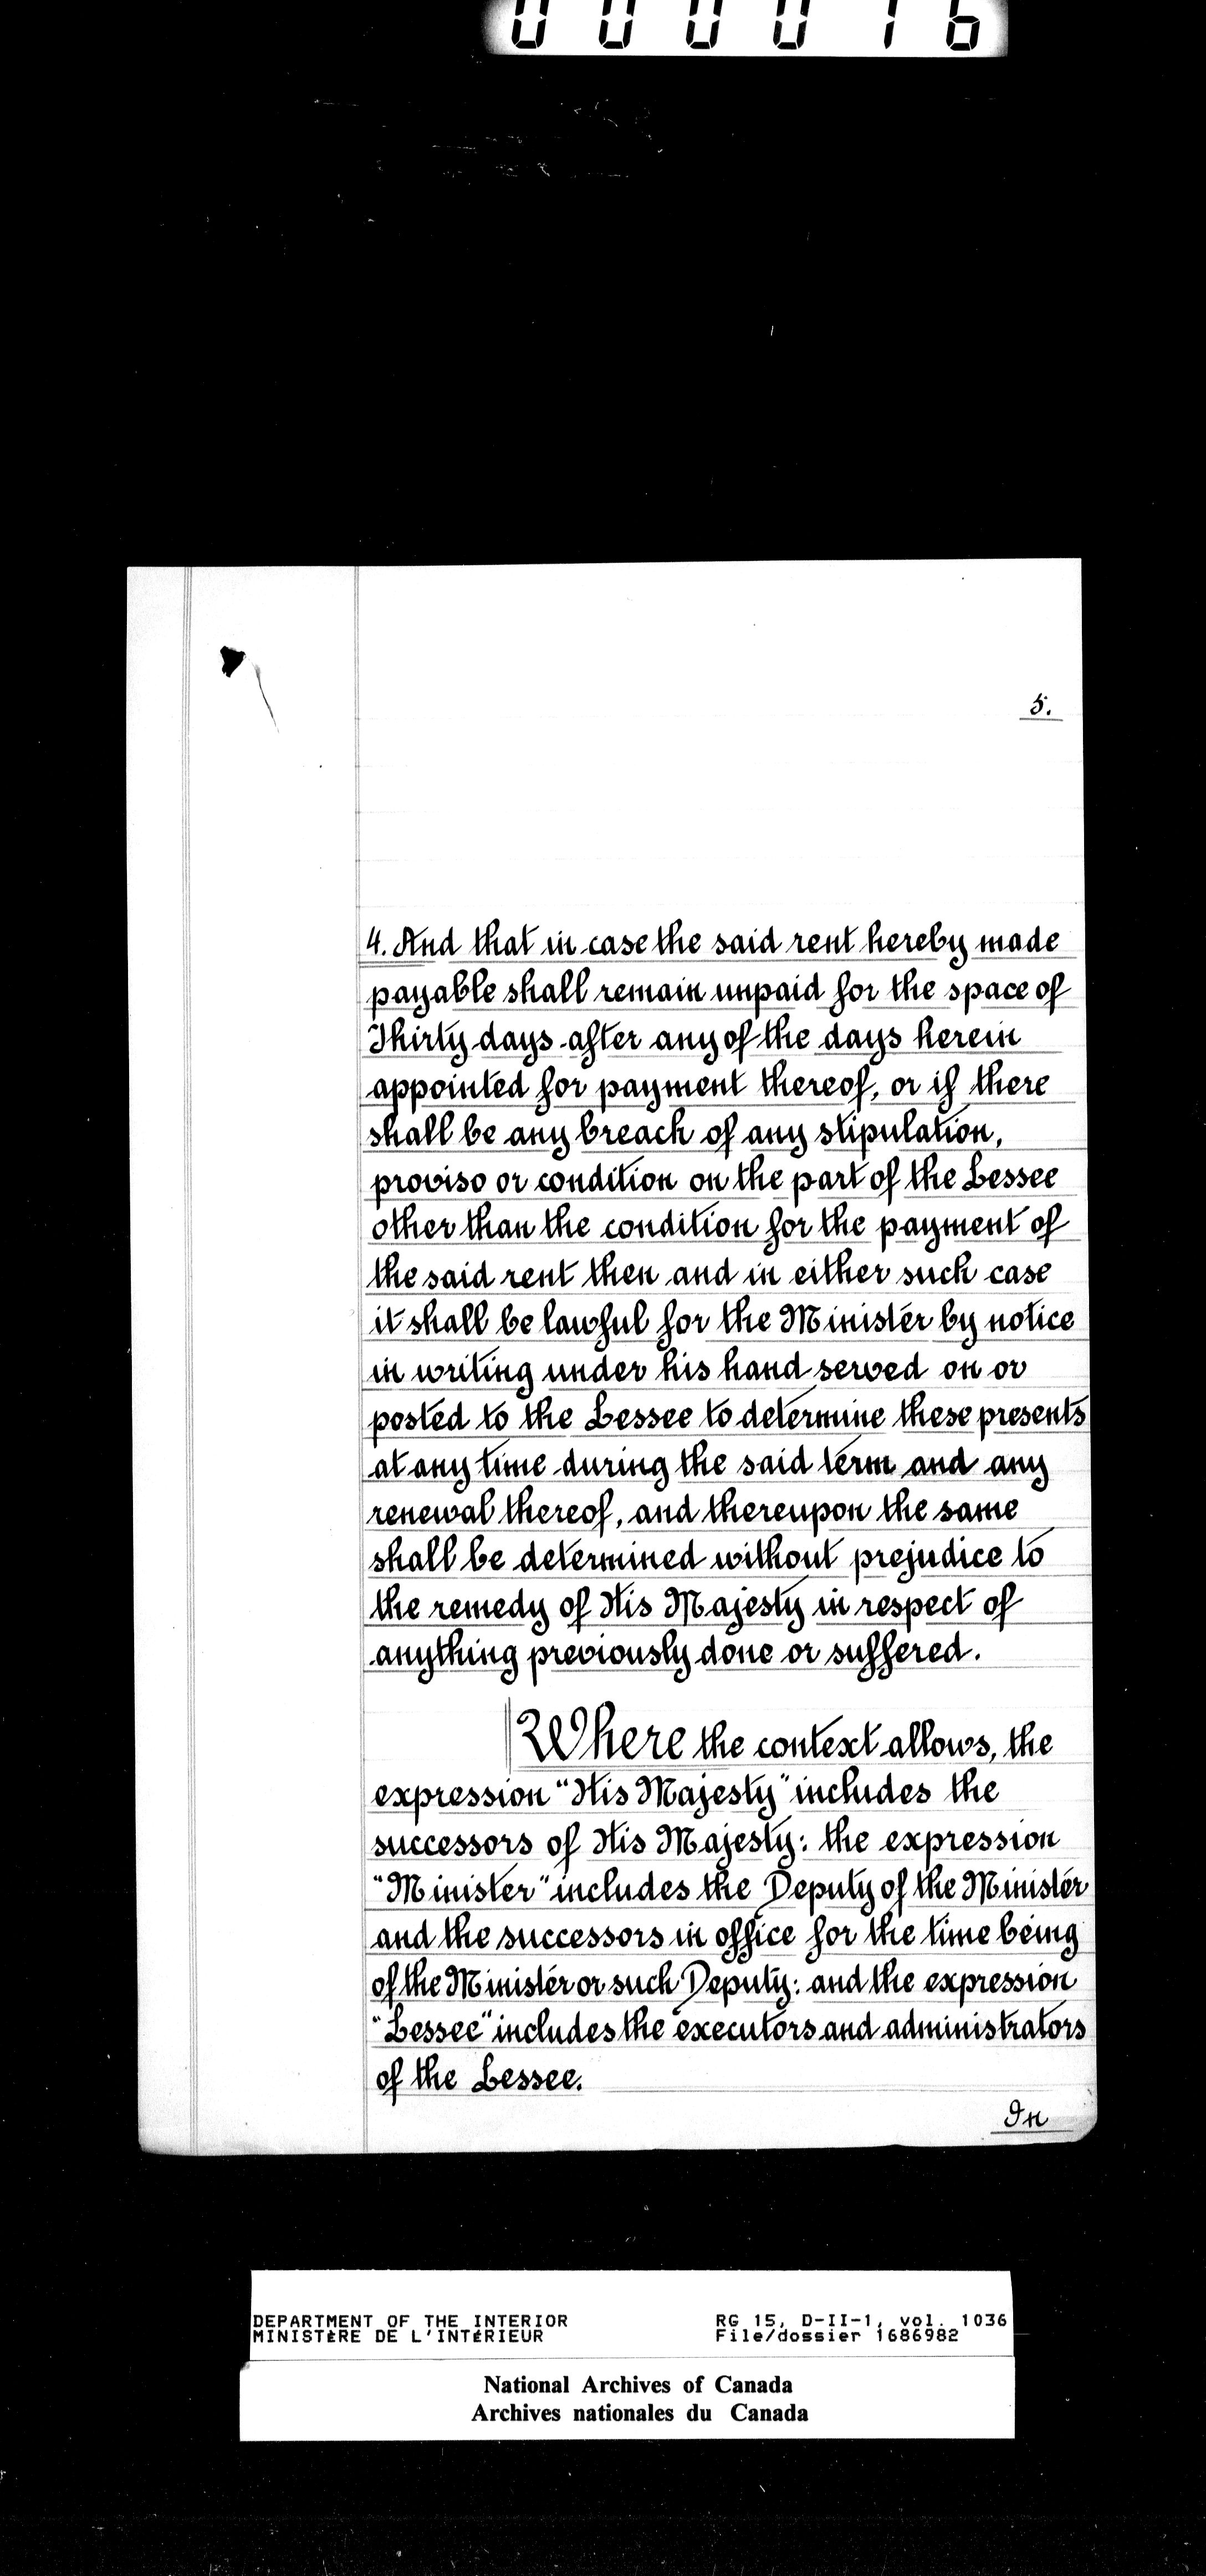 000016
5.
4. And that in case the said rent hereby made
payable shall remain unpaid for the space of
Thirty days after any of the days herein
appointed for payment thereof, or if there
shall be any breach of any stipulation,
proviso or condition on the part of the Lessee
other than the condition for the payment of
the said rent then and in either such case
it shall be lawful for the Minister by notice
in writing under his hand served on or
posted to the Lessee to determine these presents
at any time during the said term and any
renewal thereof, and thereupon the same
shall be determined without prejudice to
the remedy of His Majesty in respect of
anything previously done or suffered.
Where the context allows, the
expression "His Majesty" includes the
successors of His Majesty: the expression
"Minister" includes the Deputy of the Minister
and the successors in office for the time being
of the Minister or such Deputy: and the expression
"Lessee" includes the executors and administrators
of the Lessee.
In
DEPARTMENT OF THE INTERIOR RG 15, D-II-1, vol. 1036
MINISTÈRE DE L'INTÉRIEUR File/dossier 1686982
National Archives of Canada
Archives nationales du Canada